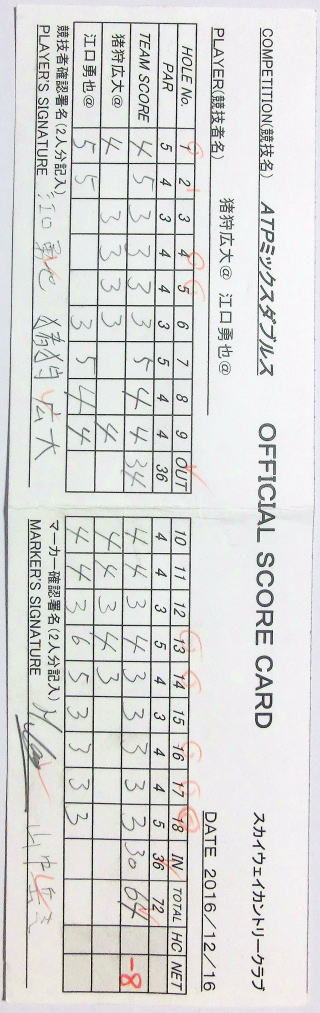 OFFICIAL SCORE CARD
スカイウェイカントリークラブ
COMPETITION(競技名) ATPミックスダブルス
DATE 2016/12/16
PLAYER(競技者名) 猪狩広大@ 江口勇也@
HOLE No. 1 2 3 4 5 6 7 8 9 OUT 10 11 12 13 14 15 16 17 18 IN TOTAL HC NET
PAR 5 4 3 4 4 3 5 4 4 36 4 4 3 5 4 3 4 4 5 36 72
TEAM SCORE 4 5 3 3 3 3 5 4 4 34 4 4 3 4 3 3 3 3 3 30 64 -8
猪狩広大@ 4 3 3 3 3 4 4 4 3 4 3
江口勇也@ 5 5 3 5 4 4 4 4 3 6 5 3 3 3 3
競技者確認署名(2人分記入) マーカー確認署名(2人分記入)
PLAYER'S SIGNATURE 江口 勇也 猪狩 広大 MARKER'S SIGNATURE